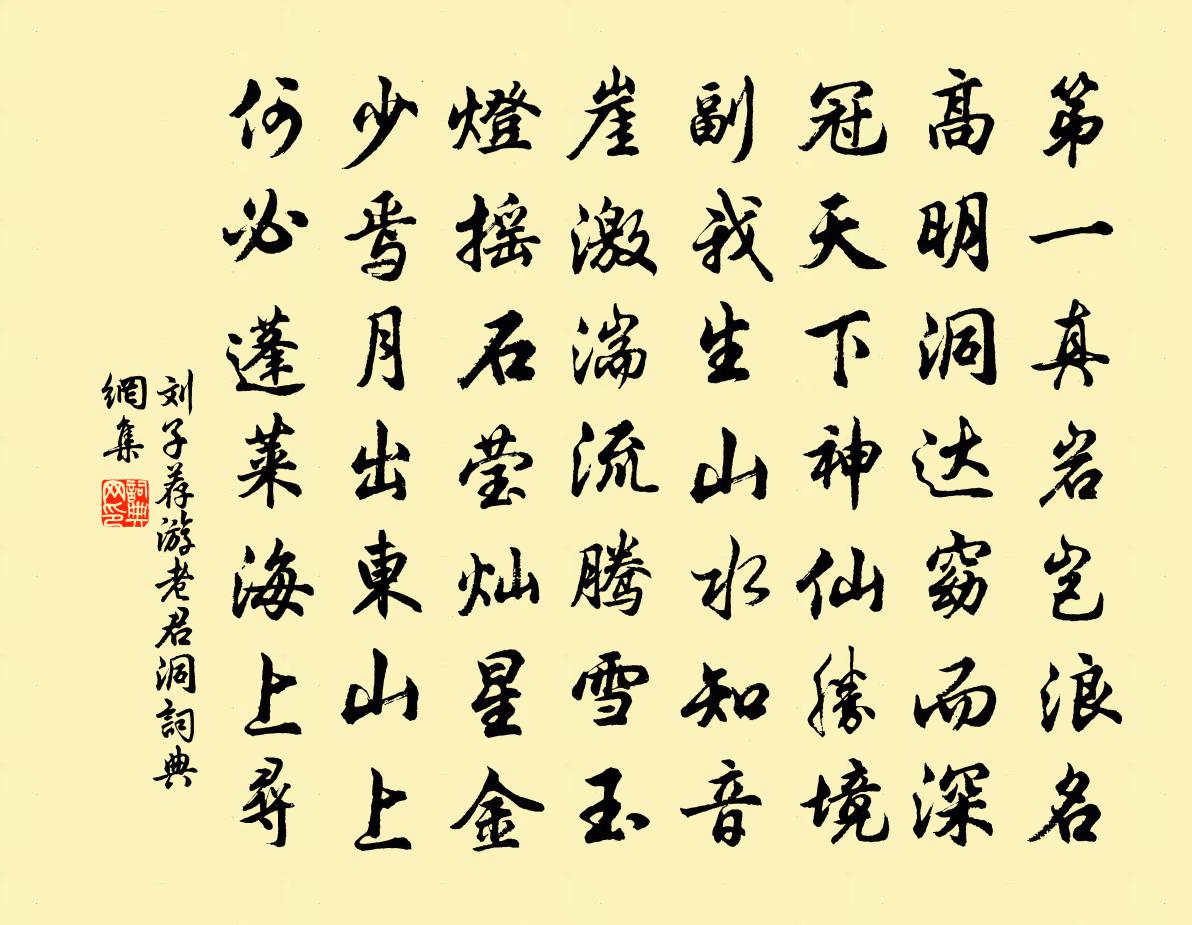 第一真岩岂浪名
高明洞达窈而深
冠天下神仙勝境
副我生山水知音
崖激湍流腾雪玉
燈摇石莹灿星金
少焉月出東山上
何必蓬莱海上尋
刘子荐游老君洞詞典
網集
詞典
网印